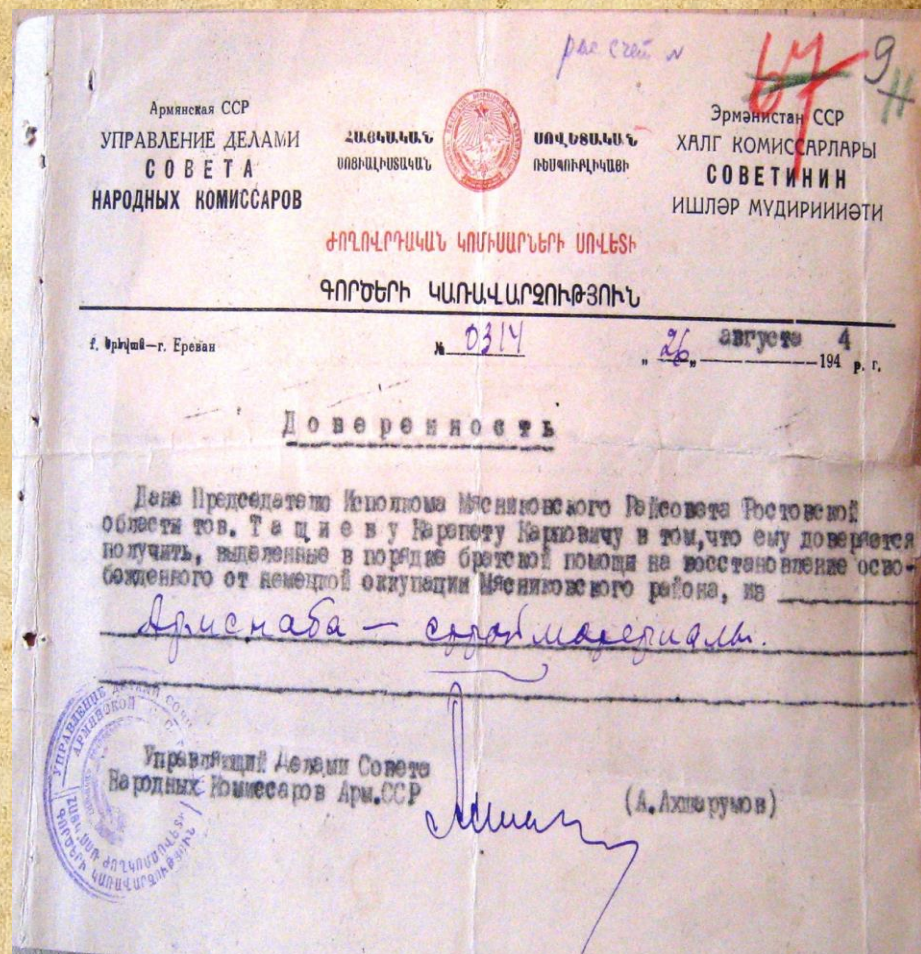 расчет
67 9
Армянская ССР
УПРАВЛЕНИЕ ДЕЛАМИ
СОВЕТА
НАРОДНЫХ КОМИССАРОВ
ՀԱՅԿԱԿԱՆ ՍՈՎԵՏԱԿԱՆ
ՍՈՑԻԱԼԻՍՏԱԿԱՆ ՌԵՍՊՈՒԲԼԻԿԱՅԻ
Эрмәнистан ССР
ХАЛГ КОМИССАРЛАРЫ
СОВЕТИНИН
ИШЛӘР МҮДИРИИИӘТИ
ԺՈՂՈՎՐԴԱԿԱՆ ԿՈՄԻՍԱՐՆԵՐԻ ՍՈՎԵՏԻ
ԳՈՐԾԵՐԻ ԿԱՌԱՎԱՐՉՈՒԹՅՈՒՆ
ք. Երևան—г. Ереван № 0314 „ 26 „ августа 194 4 թ. г.
Доверенность
Дана Председателю Исполкома Мясниковского Райсовета Ростовской
области тов. Т а щ и е в у Карапету Карповичу в том,что ему доверяется
получить, выделенные в порядке братской помощи на восстановление осво-
божденного от немецкой оккупации Мясниковского района, из
Армснаба — стройматериалы.
Управляющий Делами Совета
Народных Комиссаров Арм.ССР (А.Ахшарумов)
УПРАВЛЕНИЕ ДЕЛАМИ
АРМЯНСКОЙ
ԳՈՐԾԵՐԻ ԿԱՌԱՎԱՐՉՈՒԹՅՈՒՆ